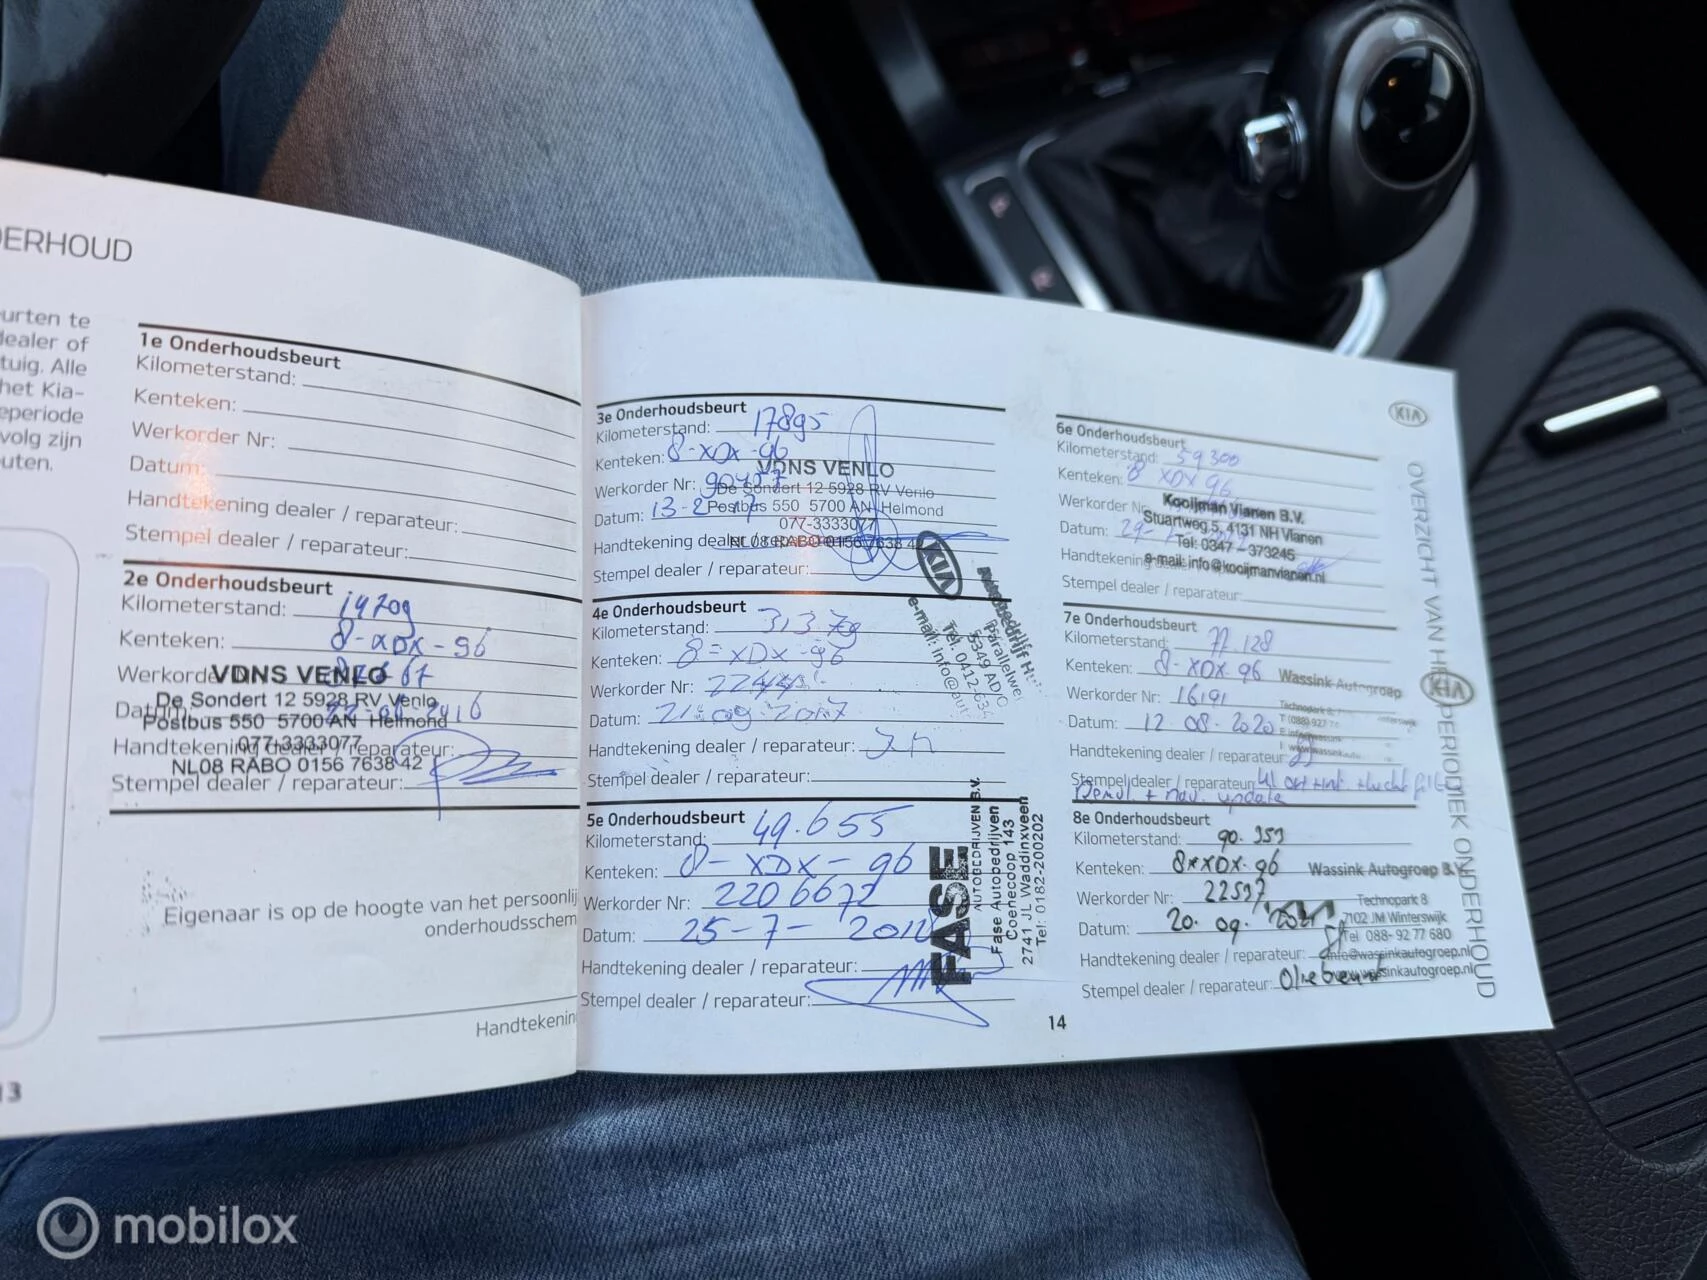 DERHOUD
urten te
dealer of
tuig. Alle
het Kia-
eperiode
volg zijn
outen.
1e Onderhoudsbeurt
Kilometerstand:
Kenteken:
Werkorder Nr:
Datum:
Handtekening dealer / reparateur:
Stempel dealer / reparateur:
2e Onderhoudsbeurt
Kilometerstand:
Kenteken: 8-XDX-96
VDNS VENLO
De Sondert 12 5928 RV Venlo
Postbus 550 5700 AN Helmond
077-3333077
NL08 RABO 0156 7638 42
Handtekening dealer / reparateur:
Stempel dealer / reparateur:
Eigenaar is op de hoogte van het persoonlij
onderhoudsschem
Handtekening
13
3e Onderhoudsbeurt
Kilometerstand: 17895
Kenteken: 8-XDX-96
Werkorder Nr:
Datum: 13-2-17
VDNS VENLO
De Sondert 12 5928 RV Venlo
Postbus 550 5700 AN Helmond
077-3333077
NL 08 RABO 0156 7638 42
Handtekening dealer / reparateur:
Stempel dealer / reparateur:
4e Onderhoudsbeurt
Kilometerstand: 31379
Kenteken: 8-XDX-96
Werkorder Nr:
Datum: 21-09-2017
Handtekening dealer / reparateur:
Stempel dealer / reparateur:
KIA
Parallelwe
5349 AD
Tel: 0412-634
e-mail: info@aut
5e Onderhoudsbeurt
Kilometerstand: 49.655
Kenteken: 8-XDX-96
Werkorder Nr: 2206672
Datum: 25-7-
Handtekening dealer / reparateur:
Stempel dealer / reparateur:
FASE
AUTOBEDRIJVEN B.V.
Fase Autobedrijven
Coenecoop 143
2741 JL Waddinxveen
Tel: 0182-200202
14
6e Onderhoudsbeurt
Kilometerstand: 59300
Kenteken: 8 XDX 96
Werkorder Nr:
Datum: 29-
Kooijman Vianen B.V.
Stuartweg 5, 4131 NH Vianen
Tel: 0347-373245
e-mail: info@kooijmanvianen.nl
Stempel dealer / reparateur:
7e Onderhoudsbeurt
Kilometerstand: 77.128
Kenteken: 8-XDX-96
Werkorder Nr: 16191
Datum: 12-08-2020
Wassink Autogroep
Handtekening dealer / reparateur:
Stempel dealer / reparateur:
+ nav. update
8e Onderhoudsbeurt
Kilometerstand: 90.353
Kenteken: 8-XDX-96
Werkorder Nr:
Datum: 20. 09. 2021
Wassink Autogroep B.V.
Technopark 8
7102 JM Winterswijk
Tel 088-92 77 680
info@wassinkautogroep.nl
www.wassinkautogroep.nl
Handtekening dealer / reparateur:
Stempel dealer / reparateur:
KIA
OVERZICHT VAN HET PERIODIEK ONDERHOUD
KIA
mobilox